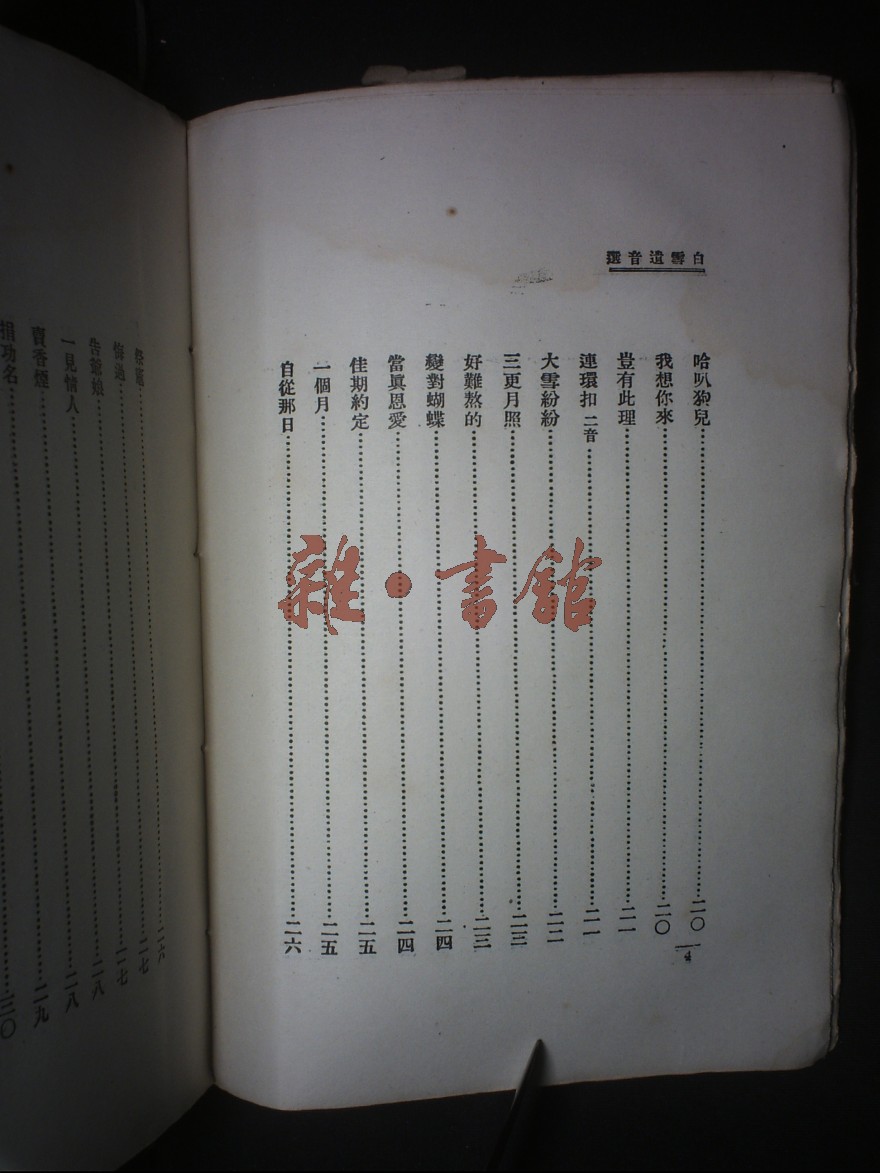 白雪遺音選
哈叭狗兒……二〇
我想你來……二〇
豈有此理……二一
連環扣 二音……二一
大雪紛紛……二二
三更月照……二三
好難熬的……二三
變對蝴蝶……二四
當眞恩愛……二四
佳期約定……二五
一個月……二五
自從那日……二六
4
雜·書館
二六
悔過……二七
告爺娘……二八
一見情人……二八
賣香煙……二九
捐功名……三〇